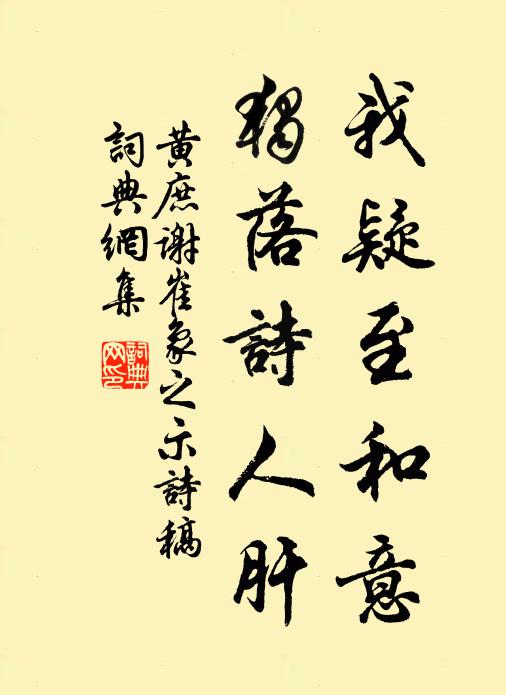 我疑至和意
獨落詩人肝
黃庶謝崔象之示詩稿
詞典網集
詞典
网印